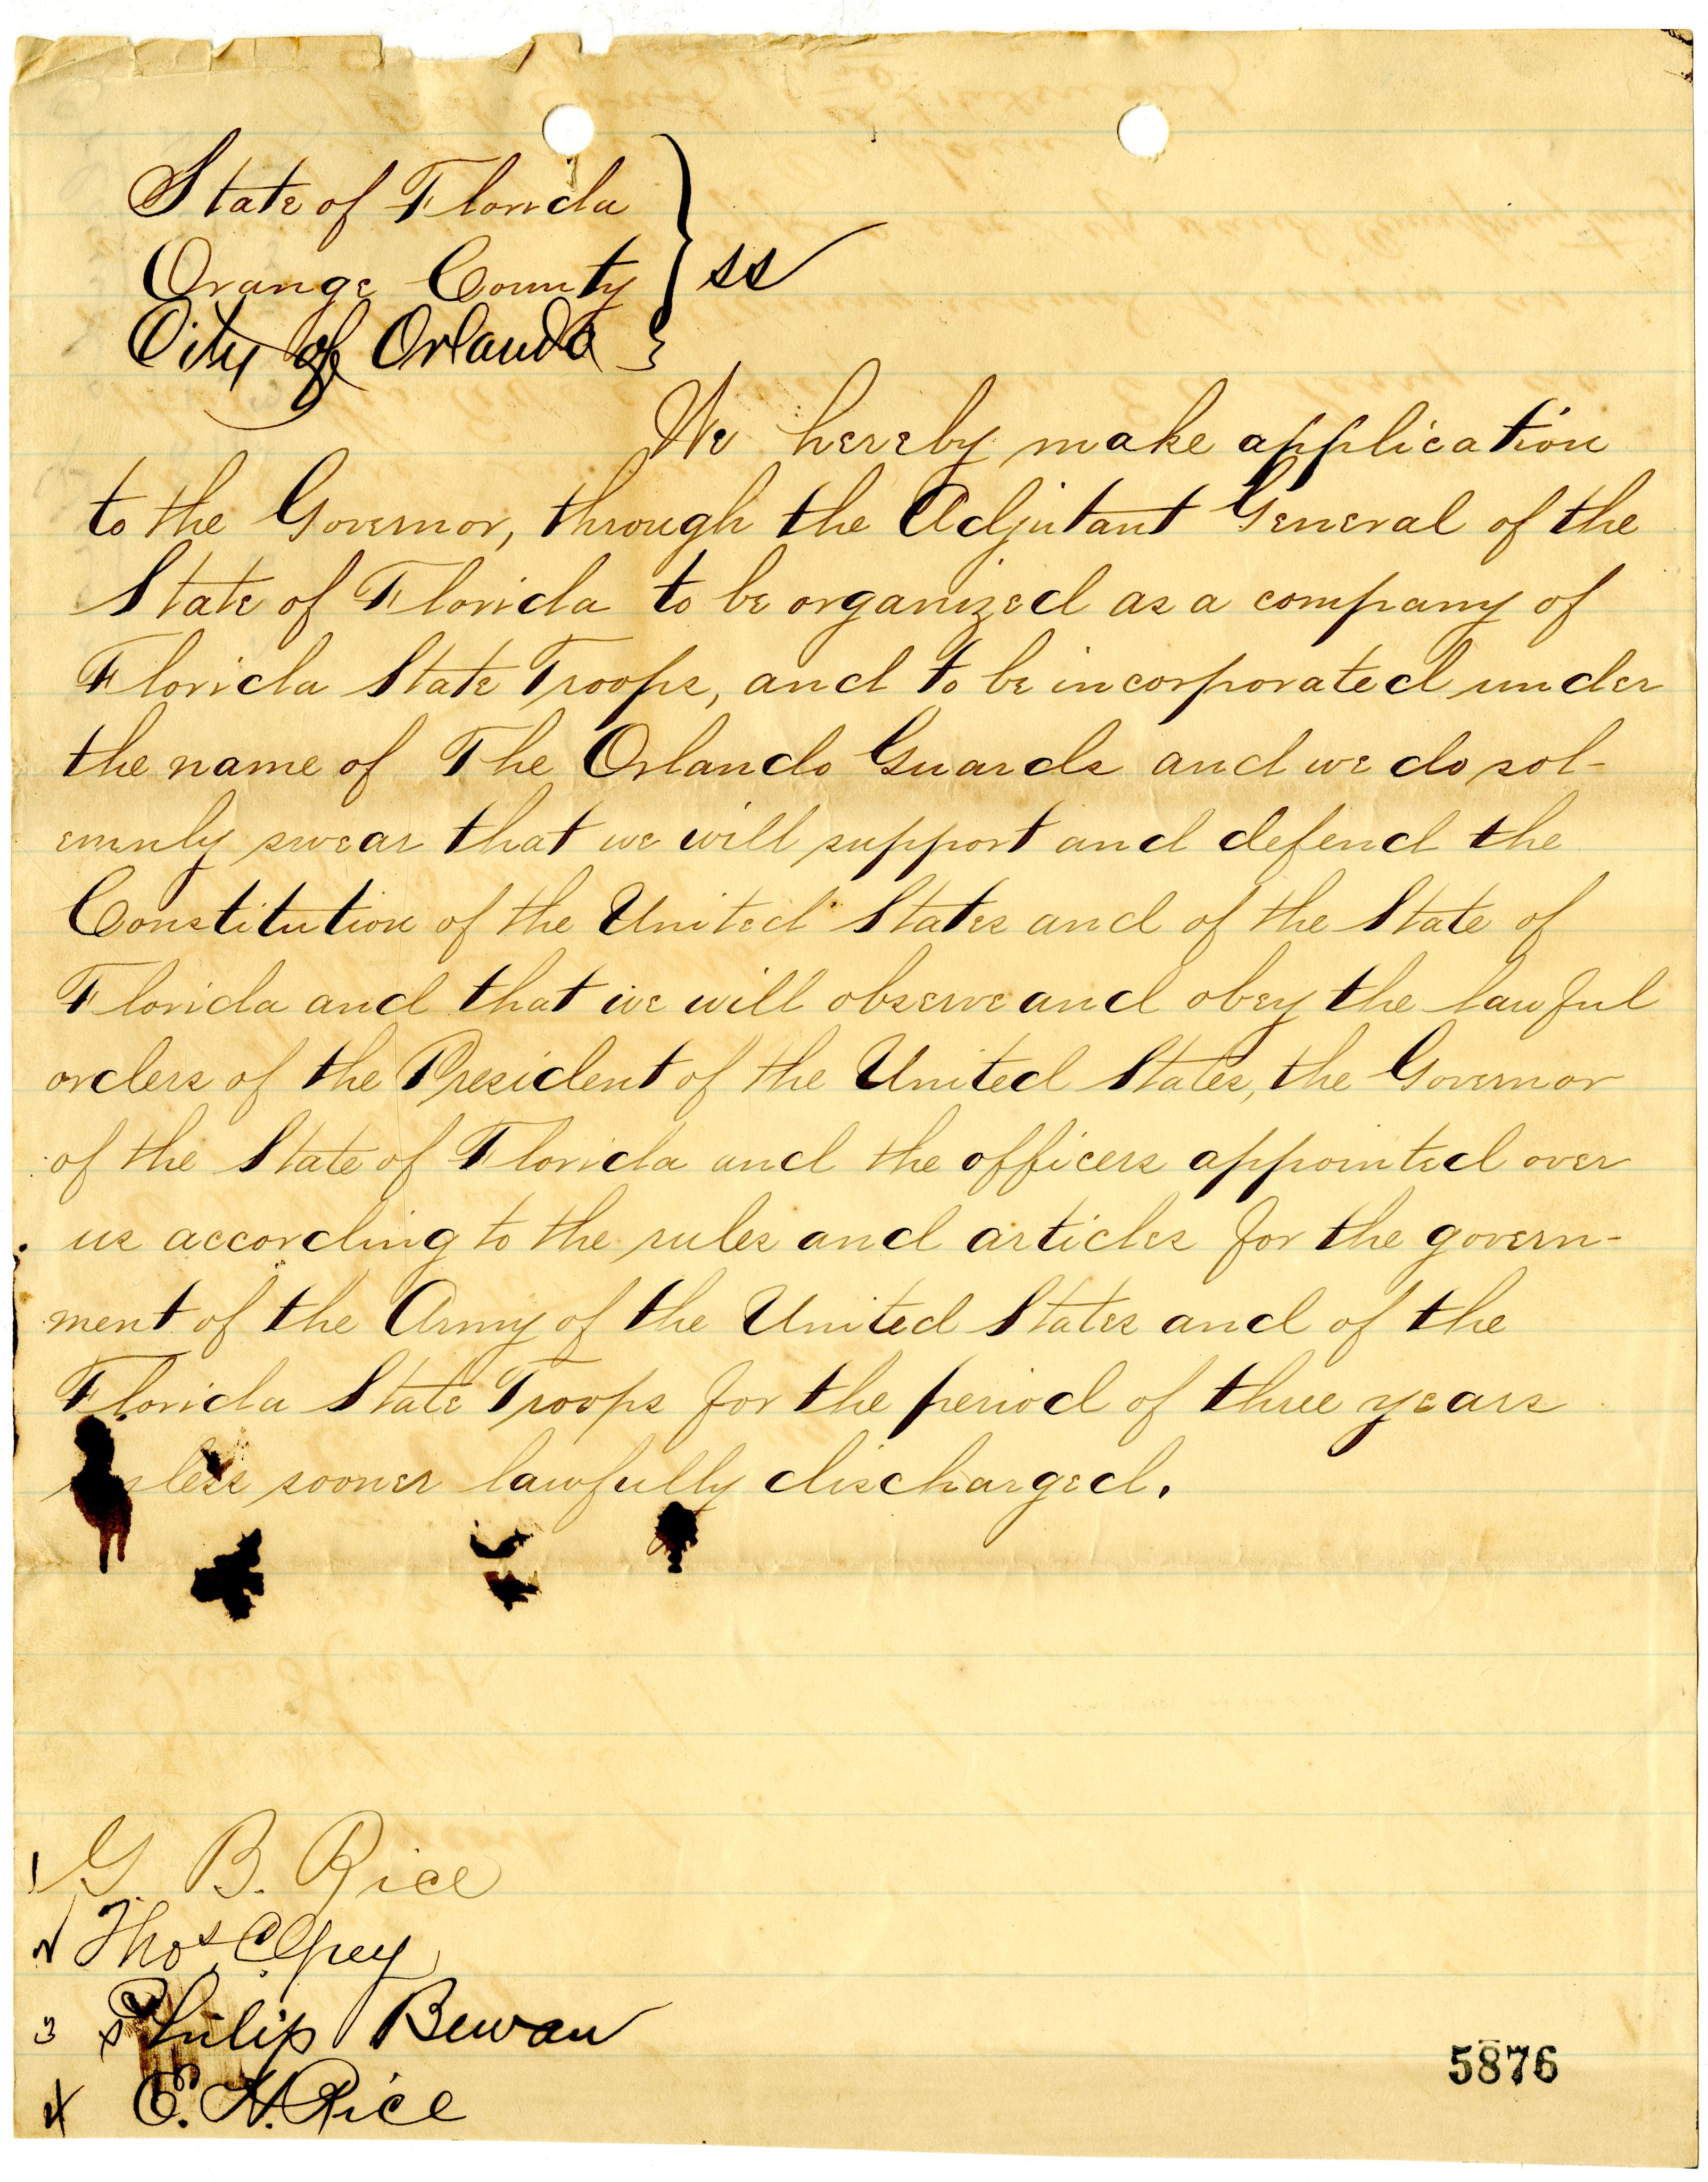 State of Florida
Orange County } ss
City of Orlando }
We hereby make application
to the Governor, through the Adjutant General of the
State of Florida to be organized as a company of
Florida State Troops, and to be incorporated under
the name of The Orlando Guards and we do sol-
emnly swear that we will support and defend the
Constitution of the United States and of the State of
Florida and that we will observe and obey the lawful
orders of the President of the United States, the Governor
of the State of Florida and the officers appointed over
us according to the rules and articles for the govern-
ment of the Army of the United States and of the
Florida State Troops for the period of three years
unless sooner lawfully discharged.
1 G. B. Rice
2 Thos C Grey
3 Philip Bewan
4 E. H. Rice
5876